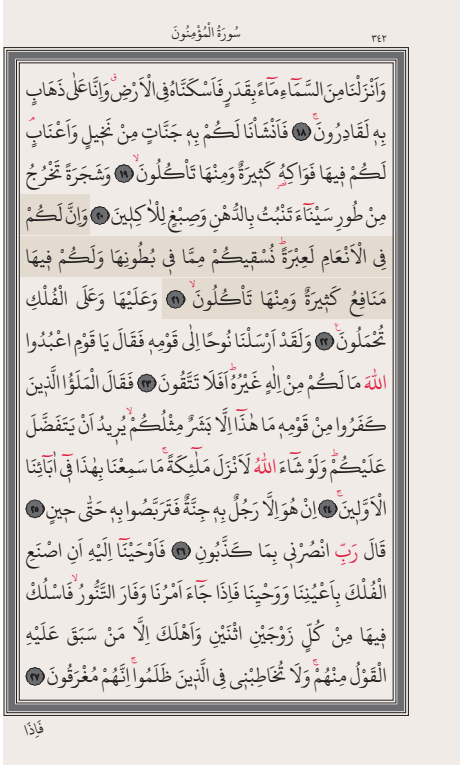 سُورَةُ الْمُؤْمِنُونَ ٣٤٢
وَاَنْزَلْنَا مِنَ السَّمَٓاءِ مَٓاءً بِقَدَرٍ فَاَسْكَنَّاهُ فِي الْاَرْضِۗ وَاِنَّا عَلٰى ذَهَابٍ
بِه۪ لَقَادِرُونَۚ ١٨ فَاَنْشَأْنَا لَكُمْ بِه۪ جَنَّاتٍ مِنْ نَخ۪يلٍ وَاَعْنَابٍۢ
لَكُمْ ف۪يهَا فَوَاكِهُ كَث۪يرَةٌ وَمِنْهَا تَأْكُلُونَۙ ١٩ وَشَجَرَةً تَخْرُجُ
مِنْ طُورِ سَيْنَٓاءَ تَنْبُتُ بِالدُّهْنِ وَصِبْغٍ لِلْاٰكِل۪ينَ ٢٠ وَاِنَّ لَكُمْ
فِي الْاَنْعَامِ لَعِبْرَةًۜ نُسْق۪يكُمْ مِمَّا ف۪ي بُطُونِهَا وَلَكُمْ ف۪يهَا
مَنَافِعُ كَث۪يرَةٌ وَمِنْهَا تَأْكُلُونَۙ ٢١ وَعَلَيْهَا وَعَلَى الْفُلْكِ
تُحْمَلُونَ۟ ٢٢ وَلَقَدْ اَرْسَلْنَا نُوحًا اِلٰى قَوْمِه۪ فَقَالَ يَا قَوْمِ اعْبُدُوا
اللّٰهَ مَا لَكُمْ مِنْ اِلٰهٍ غَيْرُهُۜ اَفَلَا تَتَّقُونَ ٢٣ فَقَالَ الْمَلَؤُا الَّذ۪ينَ
كَفَرُوا مِنْ قَوْمِه۪ مَا هٰذَٓا اِلَّا بَشَرٌ مِثْلُكُمْۙ يُر۪يدُ اَنْ يَتَفَضَّلَ
عَلَيْكُمْۜ وَلَوْ شَٓاءَ اللّٰهُ لَاَنْزَلَ مَلٰٓئِكَةًۚ مَا سَمِعْنَا بِهٰذَا ف۪ٓي اٰبَٓائِنَا
الْاَوَّل۪ينَۚ ٢٤ اِنْ هُوَ اِلَّا رَجُلٌ بِه۪ جِنَّةٌ فَتَرَبَّصُوا بِه۪ حَتّٰى ح۪ينٍ ٢٥
قَالَ رَبِّ انْصُرْن۪ي بِمَا كَذَّبُونِ ٢٦ فَاَوْحَيْنَٓا اِلَيْهِ اَنِ اصْنَعِ
الْفُلْكَ بِاَعْيُنِنَا وَوَحْيِنَا فَاِذَا جَٓاءَ اَمْرُنَا وَفَارَ التَّنُّورُۙ فَاسْلُكْ
ف۪يهَا مِنْ كُلٍّ زَوْجَيْنِ اثْنَيْنِ وَاَهْلَكَ اِلَّا مَنْ سَبَقَ عَلَيْهِ
الْقَوْلُ مِنْهُمْۚ وَلَا تُخَاطِبْن۪ي فِي الَّذ۪ينَ ظَلَمُواۚ اِنَّهُمْ مُغْرَقُونَ ٢٧
فَاِذَا